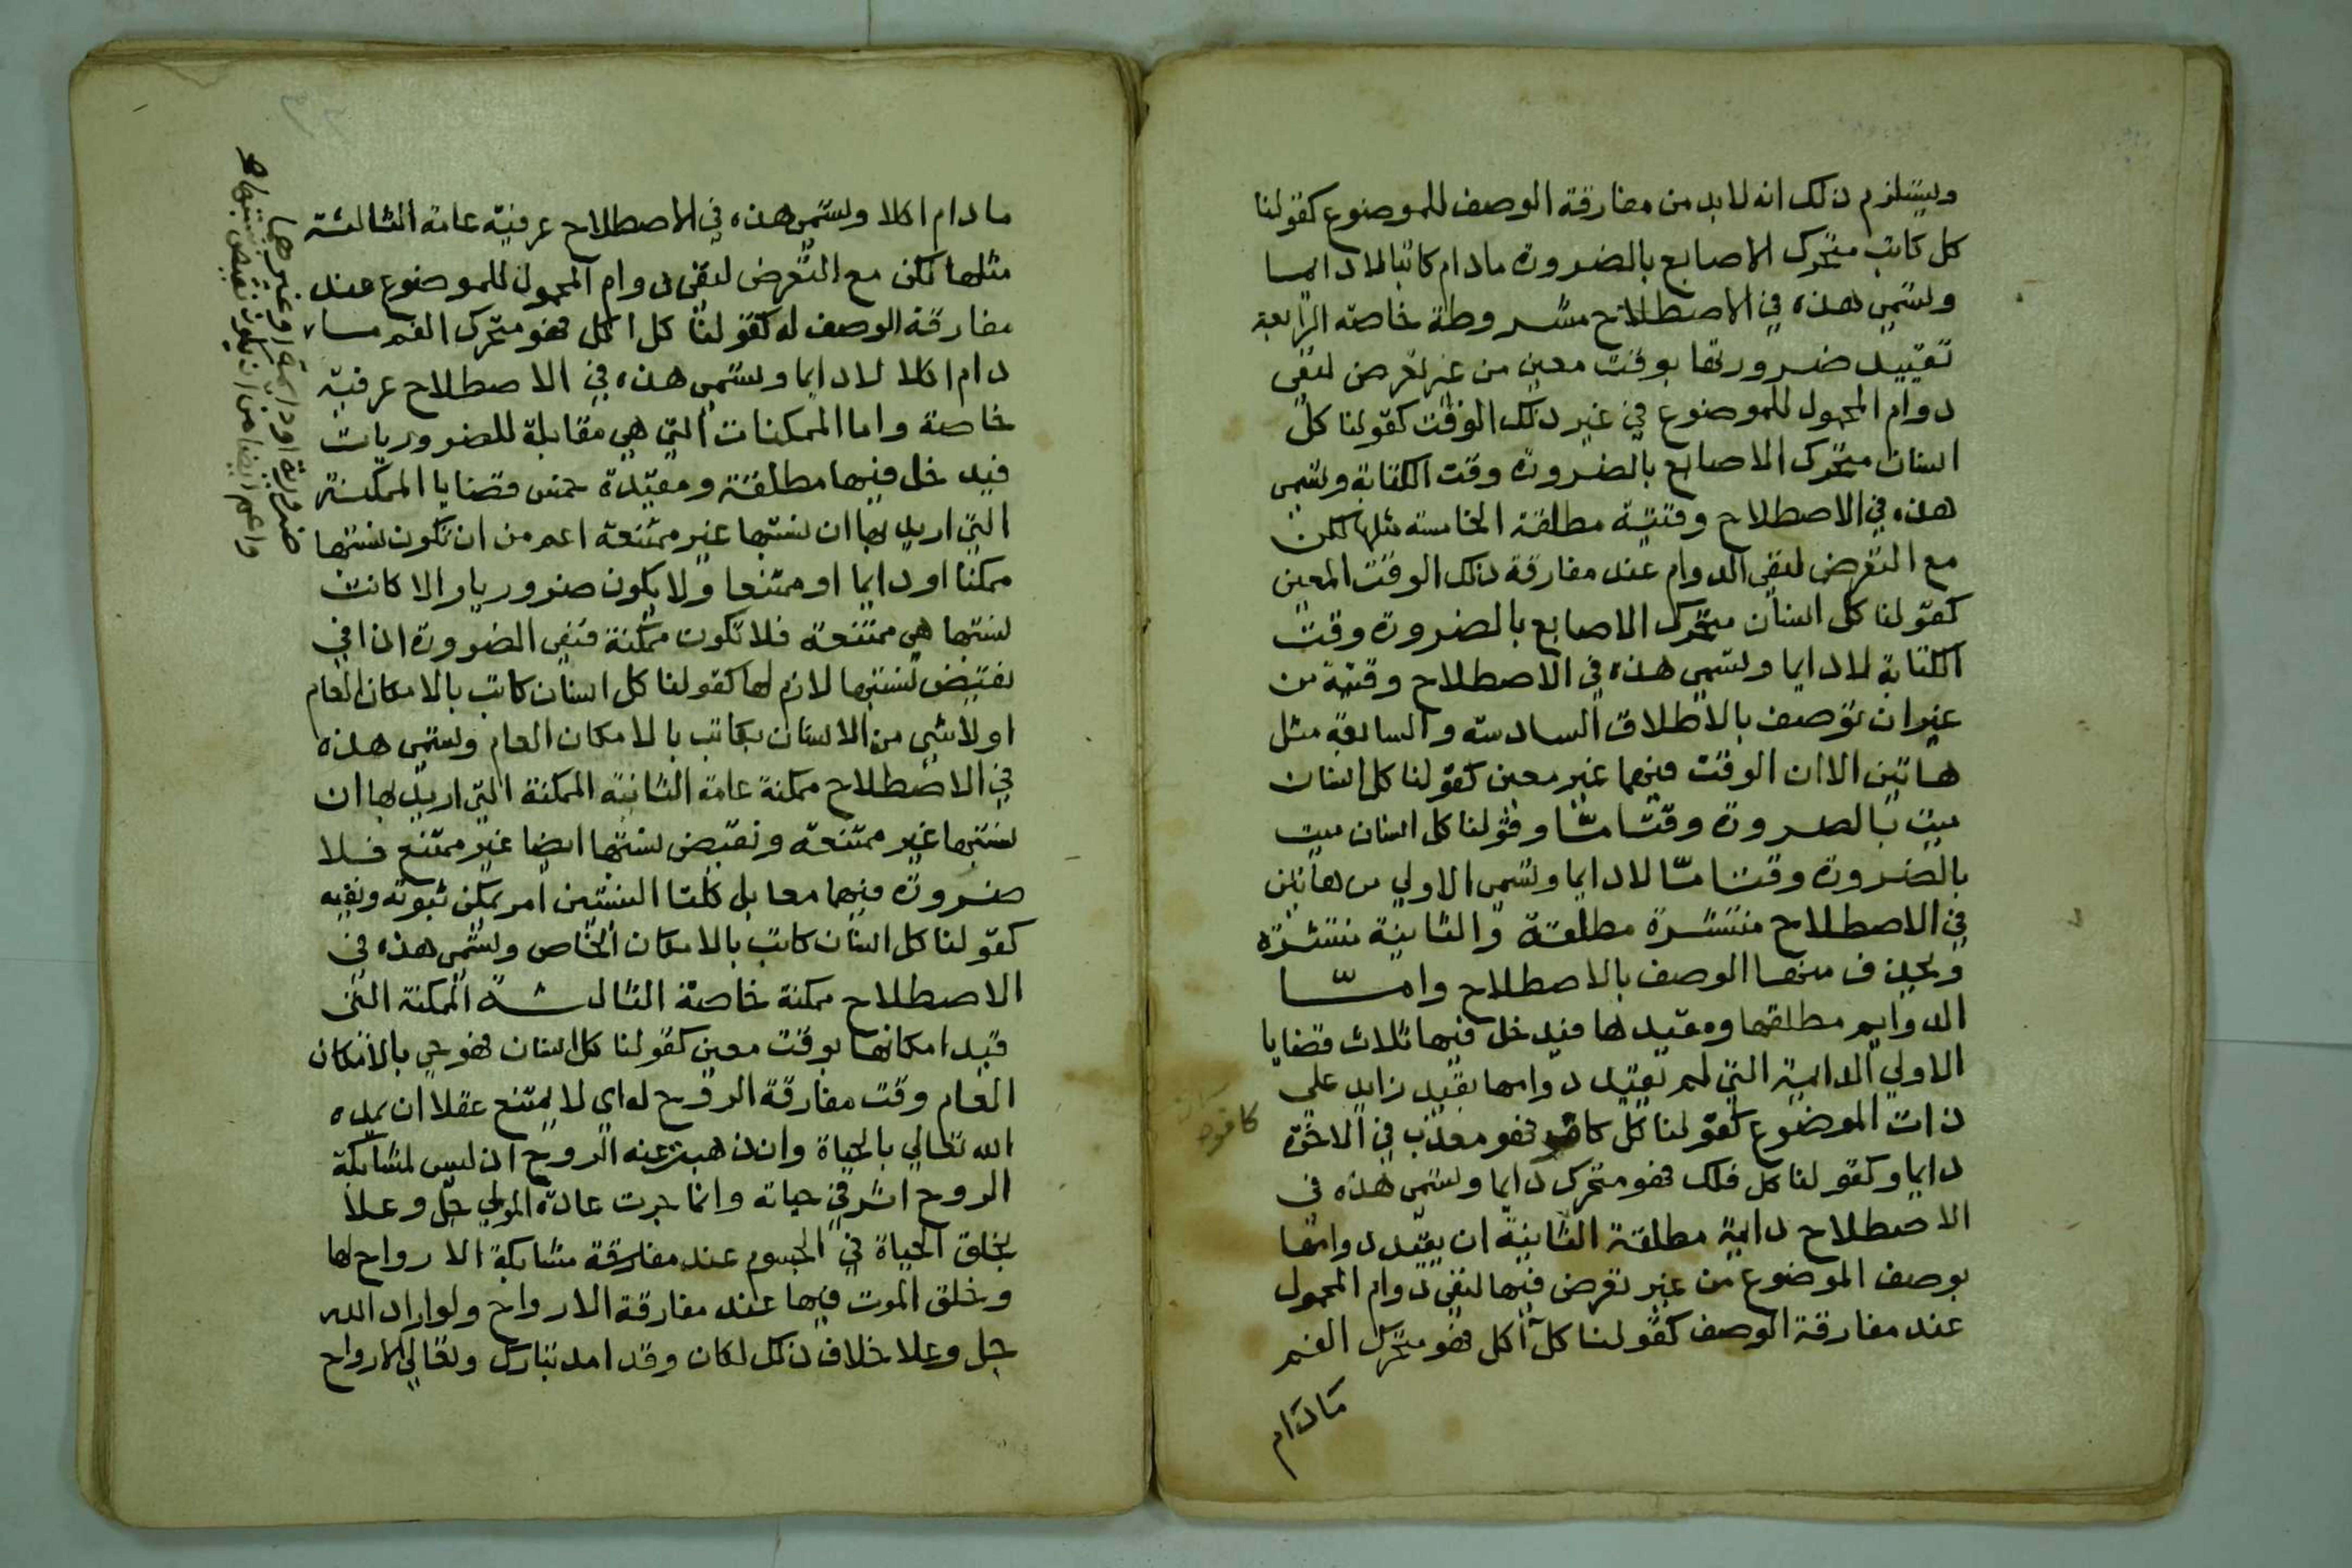 ويستلزم ذلك انه لابد من مفارقة الوصف للموضوع كقولنا
كل كاتب متحرك الاصابع بالضرورة مادام كاتبا لا دايما
وتسمي هذه في الاصطلاح مشروطة خاصة الرابعة
تقييد ضرورتها بوقت معين من غير تعرض لنفي
دوام المحمول للموضوع في غير ذلك الوقت كقولنا كل
انسان متحرك الاصابع بالضرورة وقت الكتابة وتسمي
هذه في الاصطلاح وقتية مطلقة الخامسة مثلها لكن
مع التعرض لنفي الدوام عند مفارقة ذلك الوقت المعين
كقولنا كل انسان متحرك الاصابع بالضرورة وقت
الكتابة لا دايما وتسمي هذه في الاصطلاح وقتية من
غير ان توصف بالاطلاق السادسة والسابعة مثل
هاتين الا ان الوقت فيهما غير معين كقولنا كل انسان
ميت بالضرورة وقتا مّا وقولنا كل انسان ميت
بالضرورة وقتا مّا لا دايما وتسمي الاولي من هاتين
في الاصطلاح منتشرة مطلقة والثانية منتشرة
ويحذف منها الوصف بالاصطلاح وامّا
الدوايم مطلقها ومقيدها فيدخل فيها ثلاث قضايا
الاولي الدايمة التي لم يقيد دوامها بقيد زايد علي
ذات الموضوع كقولنا كل كافر فهو معذب في الاخرة
دايما وكقولنا كل فلك فهو متحرك دايما وتسمي هذه في
الاصطلاح دايمة مطلقة الثانية ان يقيد دوامها
بوصف الموضوع من غير تعرض فيها لنفي دوام المحمول
عند مفارقة الوصف كقولنا كل آكل فهو متحرك الفم
مَادَام
مادام اكلا وتسمي هذه في الاصطلاح عرفية عامة الثالثة
مثلها لكن مع التعرض لنفي دوام المحمول للموضوع عند
مفارقة الوصف له كقولنا كل اكل فهو متحرك الفم ما
دام اكلا لا دايما وتسمي هذه في الاصطلاح عرفية
خاصة واما الممكنات التي هي مقابلة للضروريات
فيدخل فيها مطلقة ومقيدة خمس قضايا الممكنة
التي اريد بها ان نسبتها غير ممتنعة اعم من ان تكون نسبتها
ممكنا او دايما او ممتنعا ولا يكون ضروريا والا كانت
نسبتها هي ممتنعة فلا تكون ممكنة فنفي الضرورة اذا في
نقيض نسبتها لازم لها كقولنا كل انسان كاتب بالامكان العام
او لا شي من الانسان بكاتب بالامكان العام وتسمي هذه
في الاصطلاح ممكنة عامة الثانية الممكنة التي اريد بها ان
نسبتها غير ممتنعة ونقيض نسبتها ايضا غير ممتنع فلا
ضرورة فيهما معا بل كلتا النسبتين امر يمكن ثبوته ونفيه
كقولنا كل انسان كاتب بالامكان الخاص وتسمي هذه في
الاصطلاح ممكنة خاصة الثالثة الممكنة التي
قيد امكانها بوقت معين كقولنا كل انسان فهو حي بالامكان
العام وقت مفارقة الروح له اي لا يمتنع عقلا ان يمده
الله تعالي بالحياة وان ذهبت عنه الروح اذ ليس لمشابكة
الروح اثر في حياته وانما جرت عادة المولي جل وعلا
بخلق الحياة في الجسوم عند مفارقة مشابكة الارواح لها
وخلق الموت فيها عند مفارقة الارواح ولو اراد الله
جل وعلا خلاف ذلك لكان وقد امد تبارك وتعالي الارواح
ضرورية او دايمة او غيرهما
واعم ايضا من ان يكون نقيض نسبتها